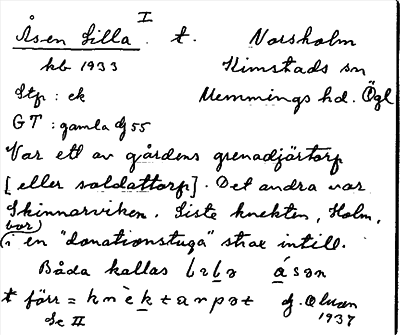 Åsen Lilla I t. Norsholm
kb 1933 Kimstads sn
Stp : ek Memmings hd. Ögl
GT : gamla dj 55
Var ett av gårdens grenadjärtorp
[eller soldattorp]. Det andra var
Skinnarviken. Siste knekten, Holm,
bor
(i en "donationstuga" strax intill.
Båda kallas
t förr =
1937
Se II